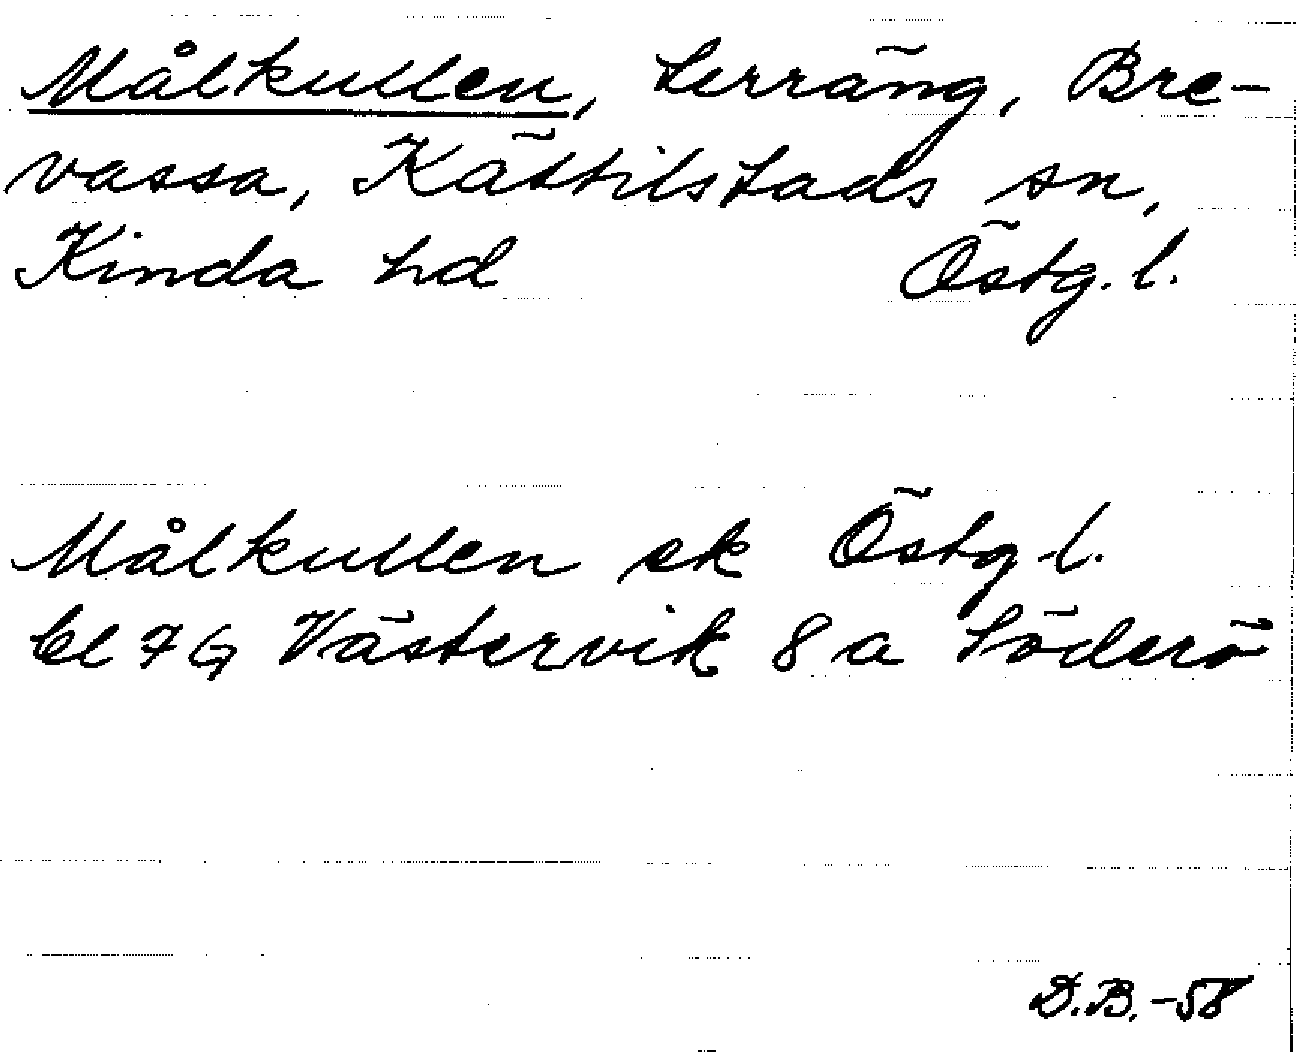 Målkullen, terräng, Bre-
vassa, Kättilstads sn,
Kinda hd Östg. l.
Målkullen ek Östg. l.
bl 7 G Västervik 8 a Söderö
D.B. -58